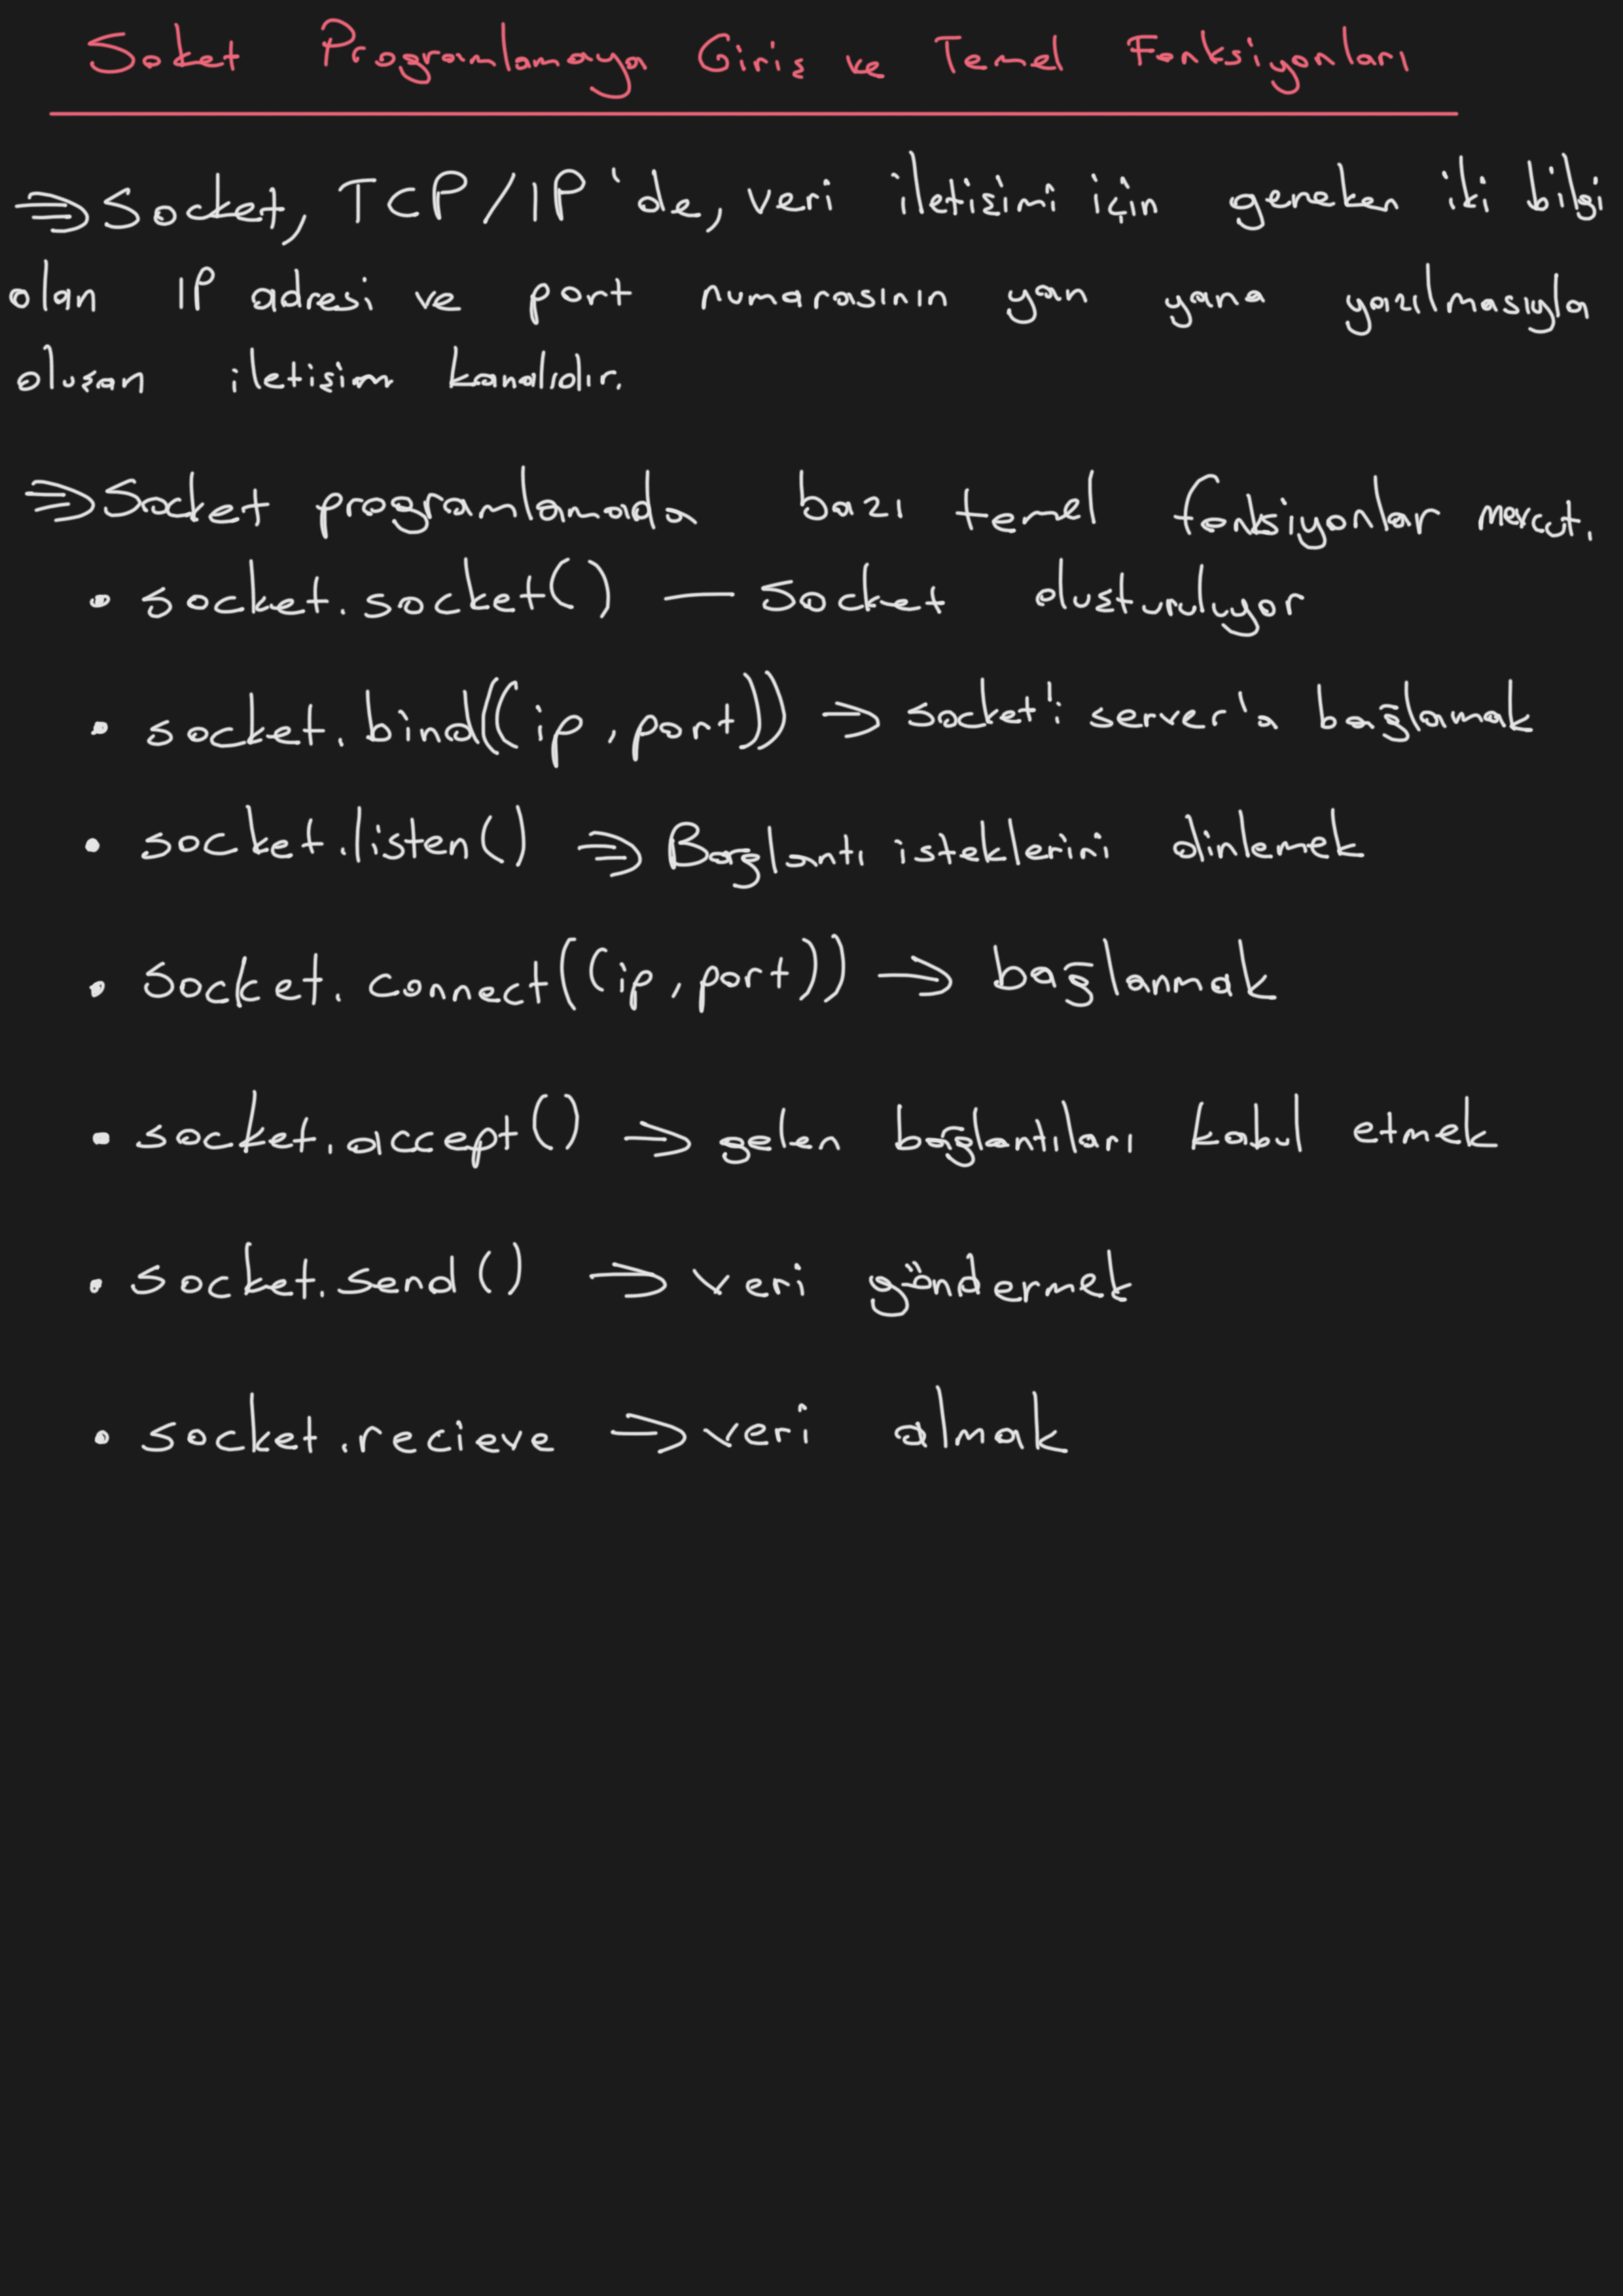 Soket Programlamaya Giriş ve Temel Fonksiyonları
⇒ Socket, TCP/IP 'de, veri iletişimi için gereken iki bilgi
olan IP adresi ve port numarasının yan yana yazılmasıyla
oluşan iletişim kanalıdır.
⇒ Socket programlamada bazı temel fonksiyonlar mevcut.
• socket.socket() — socket oluşturuluyor
• socket.bind((ip, port)) → socket'i server'a bağlamak
• socket.listen() ⇒ Bağlantı isteklerini dinlemek
• socket.connect((ip, port)) → bağlanmak
• socket.accept() → gelen bağlantıları kabul etmek
• socket.send() → veri göndermek
• socket.recieve → veri almak